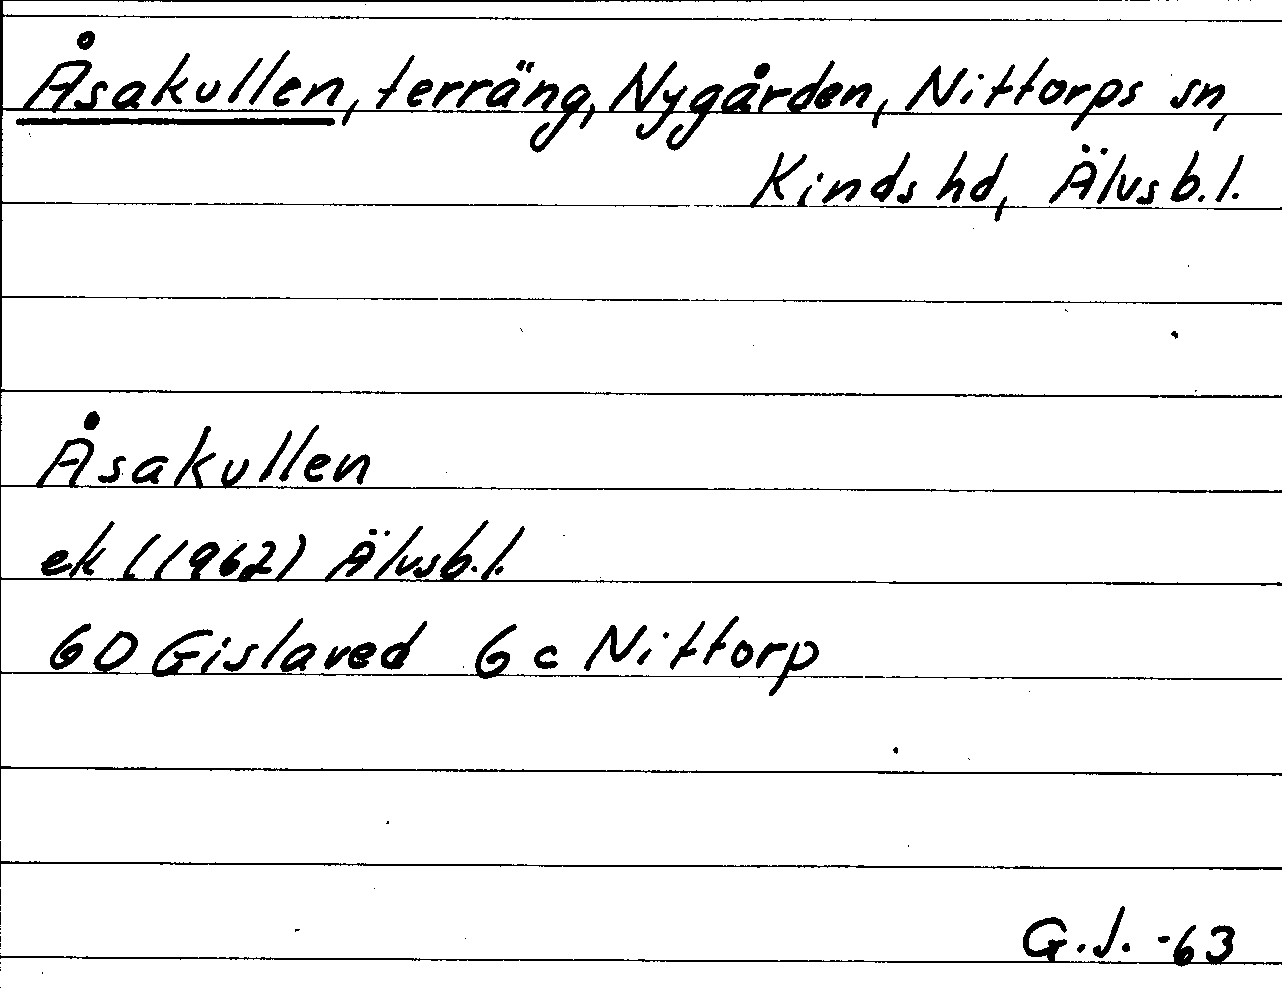 Åsakullen, terräng, Nygården, Nittorps sn,
Kinds hd, Älvsb.l.
Åsakullen
ek (1962) Älvsb.l.
6D Gislaved 6c Nittorp
G.J. -63